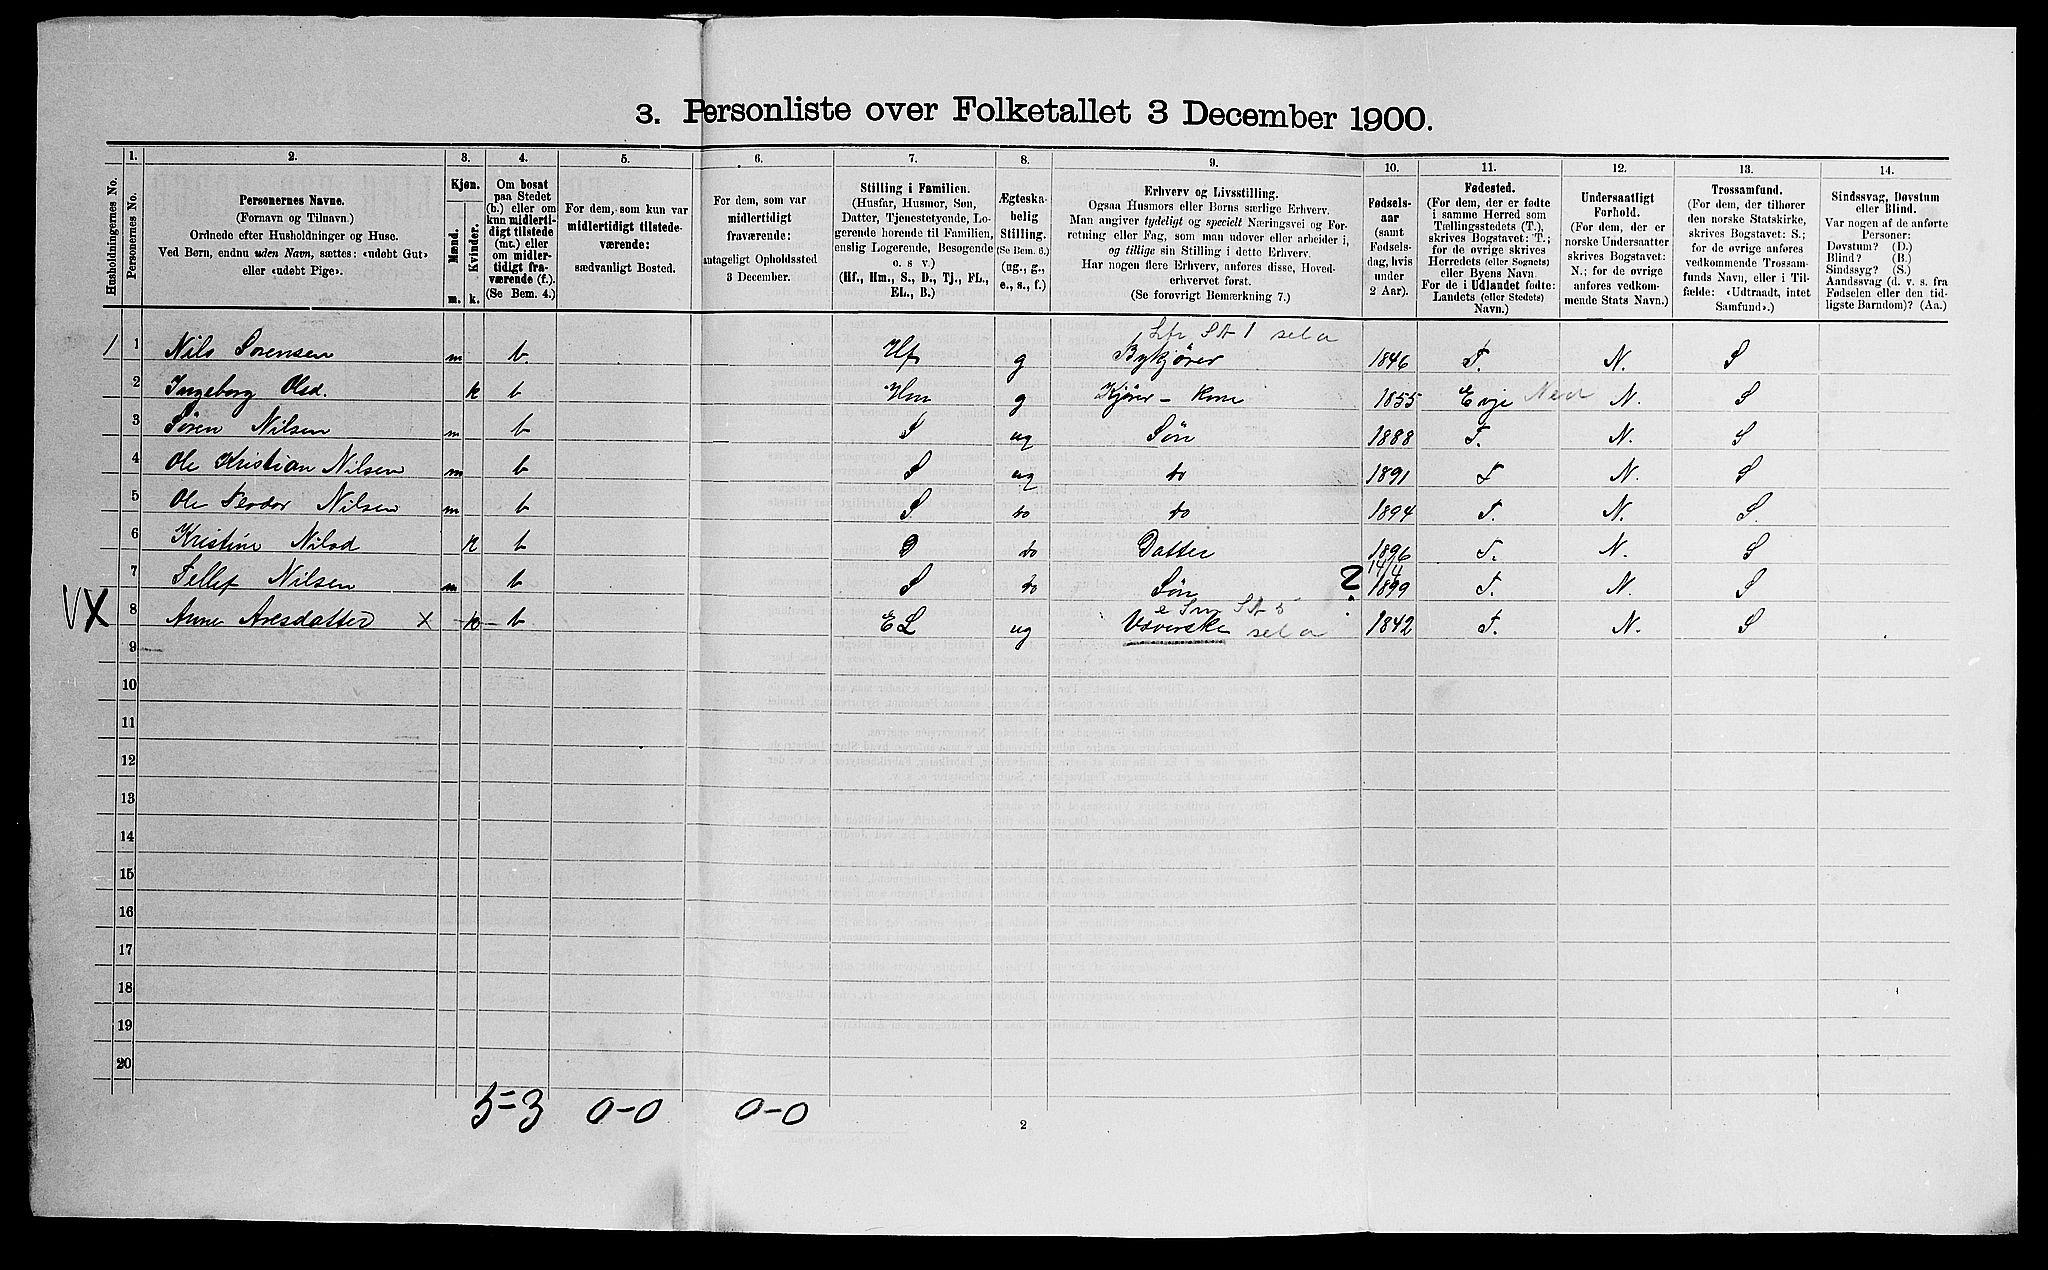 3. Personliste over Folketallet 3 December 1900.
1. 2. 3. 4. 5. 6. 7. 8. 9. 10. 11. 12. 13. 14.
Husholdningernes No.
Personernes No.
Personernes Navne.
(Fornavn og Tilnavn.)
Ordnede efter Husholdninger og Huse.
Ved Børn, endnu uden Navn, sættes: «udøbt Gut»
eller «udøbt Pige».
Kjøn.
Mænd.
Kvinder.
m. k.
Om bosat
paa Stedet
(b.) eller om
kun midlerti-
digt tilstede
(mt.) eller
om midler-
tidigt fra-
værende (f.).
(Se Bem. 4.)
For dem, som kun var
midlertidigt tilstede-
værende:
sædvanligt Bosted.
For dem, som var
midlertidigt
fraværende:
antageligt Opholdssted
3 December.
Stilling i Familien.
(Husfar, Husmor, Søn,
Datter, Tjenestetyende, Lo-
gerende hørende til Familien,
enslig Logerende, Besøgende
o. s v.)
(Hf., Hm., S., D., Tj., FL.,
EL., B.)
Ægteska-
belig
Stilling.
(Se Bem. 6.)
(ug., g.,
e., s., f.)
Erhverv og Livsstilling.
Ogsaa Husmors eller Børns særlige Erhverv.
Man angiver tydeligt og specielt Næringsvei og For-
retning eller Fag, som man udover eller arbeider i,
og tillige sin Stilling i dette Erhverv.
Har nogen flere Erhverv, anføres disse, Hoved-
erhvervet først.
(Se forøvrigt Bemærkning 7.)
Fødsels-
aar
(samt
Fødsels-
dag, hvis
under
2 Aar).
Fødested.
(For dem, der er fødte
i samme Herred som
Tællingsstedets (T.),
skrives Bogstavet: T.;
for de øvrige skrives
Herredets (eller Sognets)
eller Byens Navn.
For de i Udlandet fødte:
Landets (eller Stedets)
Navn.)
Undersaatligt
Forhold.
(For dem, der er
norske Undersaatter
skrives Bogstavet:
N.; for de øvrige
anføres vedkom-
mende Stats Navn.)
Trossamfund.
(For dem, der tilhører
den norske Statskirke,
skrives Bogstavet: S.;
for de øvrige anføres
vedkommende Trossam-
funds Navn, eller i Til-
fælde: «Udtraadt, intet
Samfund».)
Sindssvag, Døvstum
eller Blind.
Var nogen af de anførte
Personer:
Døvstum? (D.)
Blind? (B.)
Sindssyg? (S.)
Aandssvag (d. v. s. fra
Fødselen eller den tid-
ligste Barndom)? (Aa.)
Lfr St 1 sel a
1 1 Nils Sørensen m b. Hf g Bykjører 1846 T. N. S
2 Ingeborg Olsd. k b Hm g Kjører - kone 1855 Evje Ned N. S
3 Søren Nilsen m b S ug Søn 1888 T. N. S
4 Ole Kristian Nilsen m b S ug do 1891 T N. S
5 Ole Teodor Nilsen m b S. do do 1894 T. N. S.
6 Kristine Nilsd k b D do Datter 1896 T. N. S
14/4
7 Tellef Nilsen m b S do Søn ? 1899 T. N. S
VX 8 Anne Aresdatter x k b EL ug Væverske sel a 1842 T. N. S
9
10
11
12
13
14
15
16
17
18
19
20
5=3 0-0 0-0
2